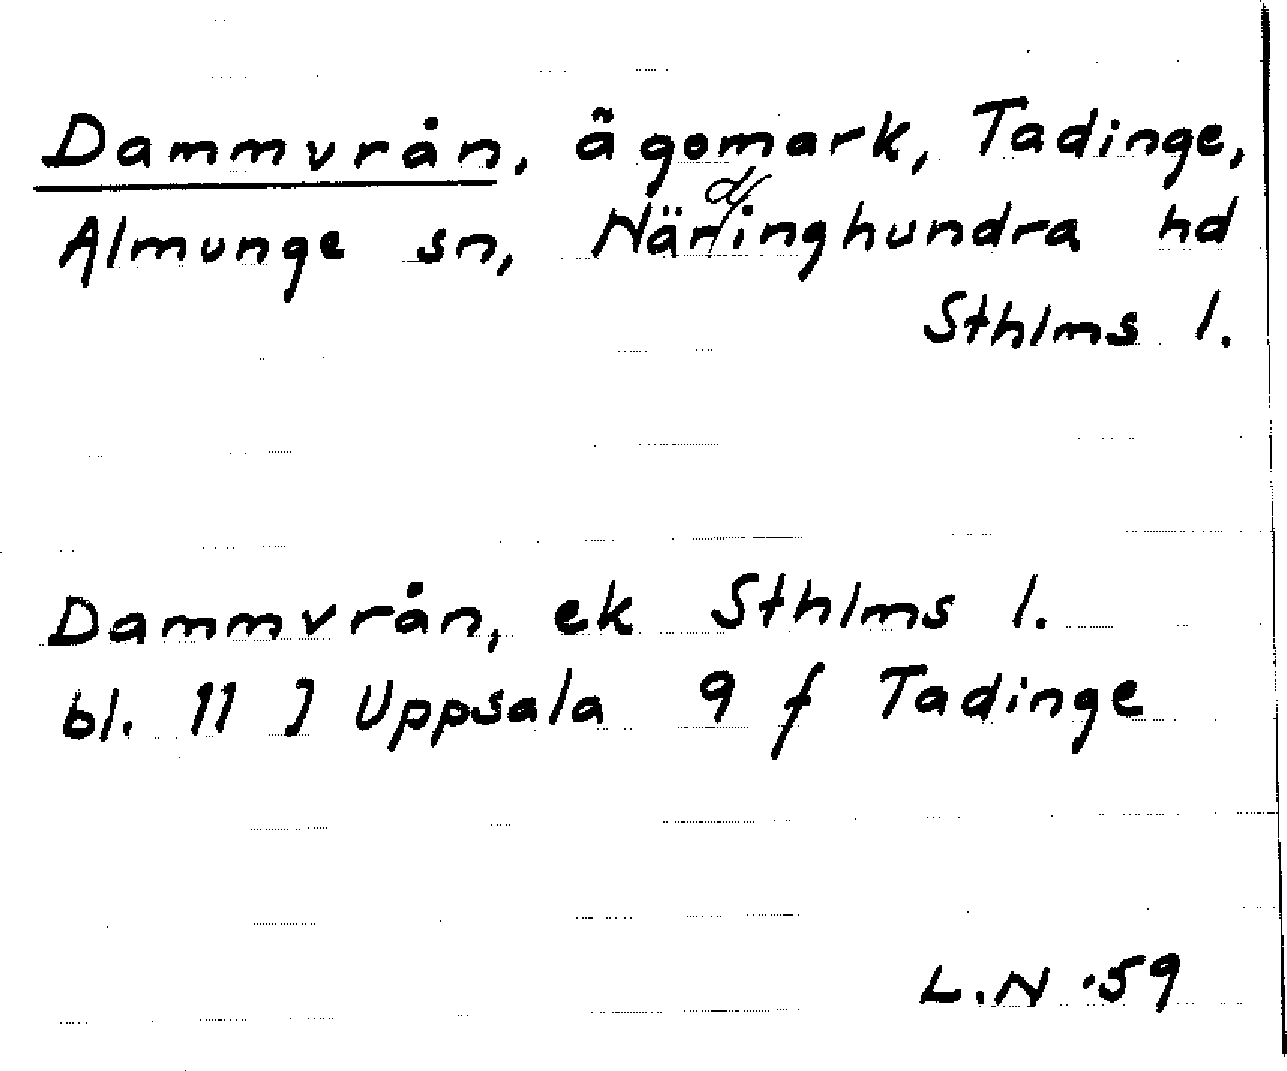 Dammvrån, ägomark, Tadinge,
Almunge sn, Närdinghundra hd
Sthlms l.
Dammvrån, ek Sthlms l.
bl. 11 J Uppsala 9 f Tadinge
L.N. -59